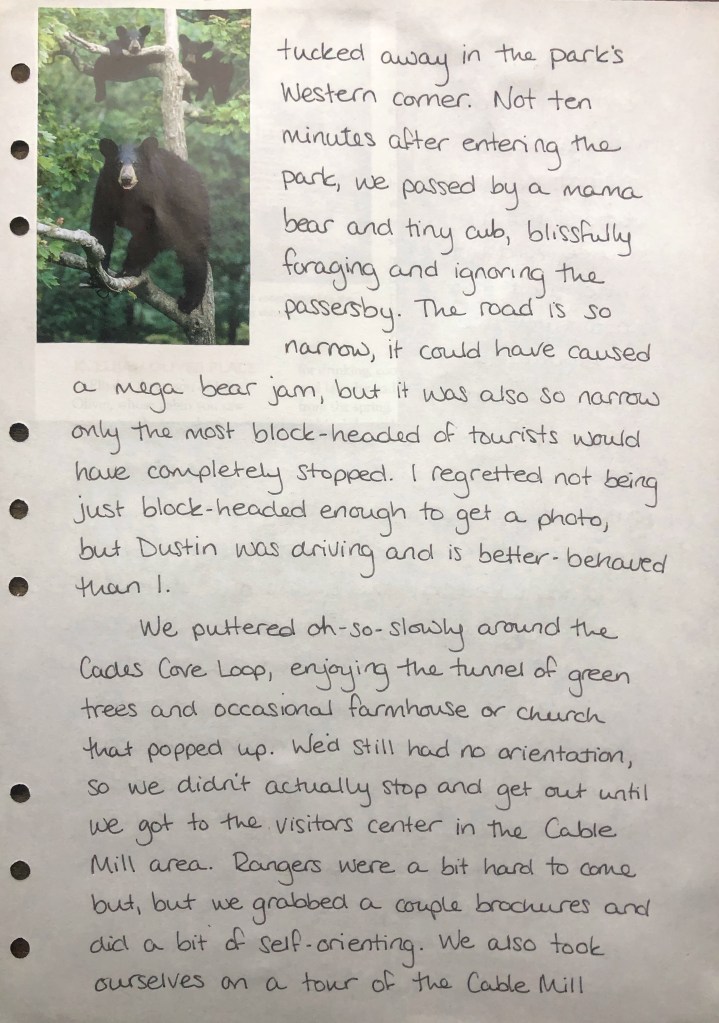 tucked away in the park's
Western corner. Not ten
minutes after entering the
park, we passed by a mama
bear and tiny cub, blissfully
foraging and ignoring the
passersby. The road is so
narrow, it could have caused
a mega bear jam, but it was also so narrow
only the most block-headed of tourists would
have completely stopped. I regretted not being
just block-headed enough to get a photo,
but Dustin was driving and is better-behaved
than I.
We puttered oh-so-slowly around the
Cades Cove Loop, enjoying the tunnel of green
trees and occasional farmhouse or church
that popped up. We'd still had no orientation,
so we didn't actually stop and get out until
we got to the visitors center in the Cable
Mill area. Rangers were a bit hard to come
but, but we grabbed a couple brochures and
did a bit of self-orienting. We also took
ourselves on a tour of the Cable Mill